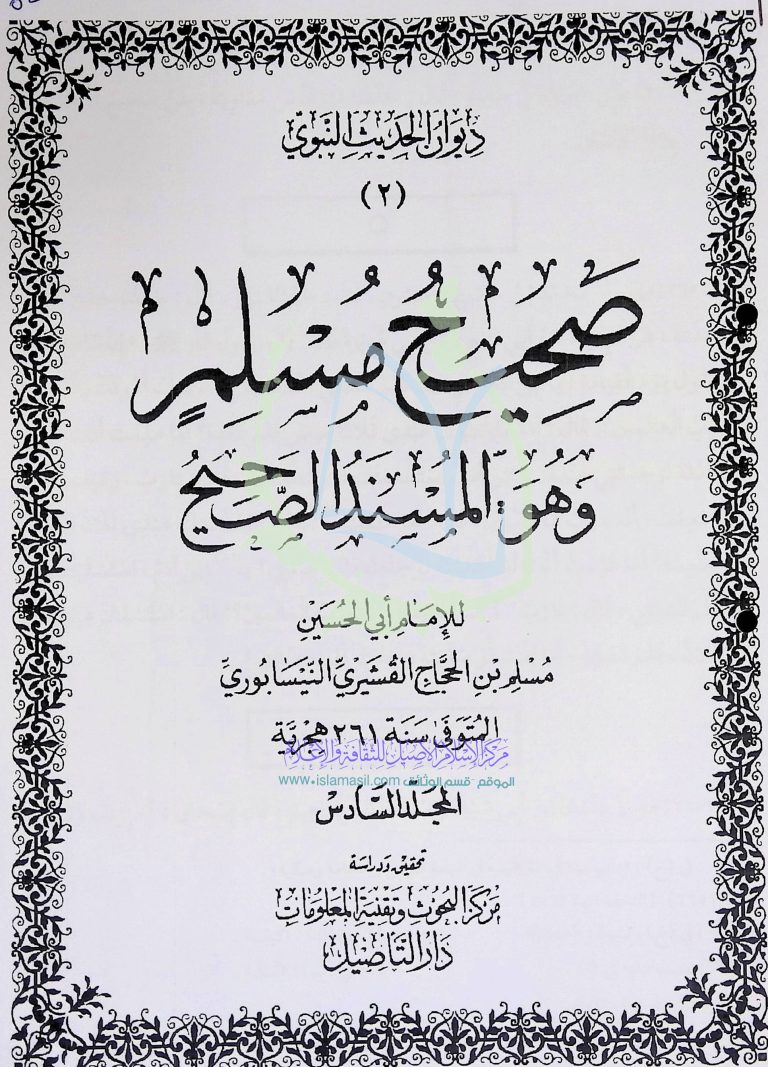 ديوان الحديث النبوي
(٢)
صَحِيحُ مُسْلِمٍ
وَهُوَ: المُسْنَدُ الصَّحِيحُ
للإمام أبي الحُسَين
مُسْلِم بن الحجَّاج القُشَيْريِّ النَّيْسَابُوريِّ
المُتَوَفَّى سَنَة ٢٦١ هِجْرِيَّة
مركز الإسلام الأصيل للثقافة والإعلام
الموقع - قسم الوثائق www.islamasil.com
المجلّد السَّادس
تحقيق ودراسة
مَركز البُحُوث وتقنية المعلومات
دَار التَّأصِيل